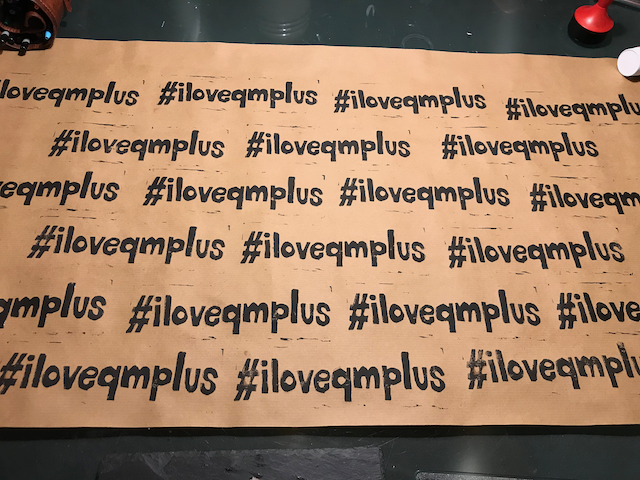 iloveqmplus #iloveqmplus #iloveqmplus #iloveqmplu
#iloveqmplus #iloveqmplus #iloveqmplus
veqmplus #iloveqmplus #iloveqmplus #iloveqm
#iloveqmplus #iloveqmplus #iloveqmplus
qmplus #iloveqmplus #iloveqmplus #ilove
#iloveqmplus #iloveqmplus #iloveqmplus